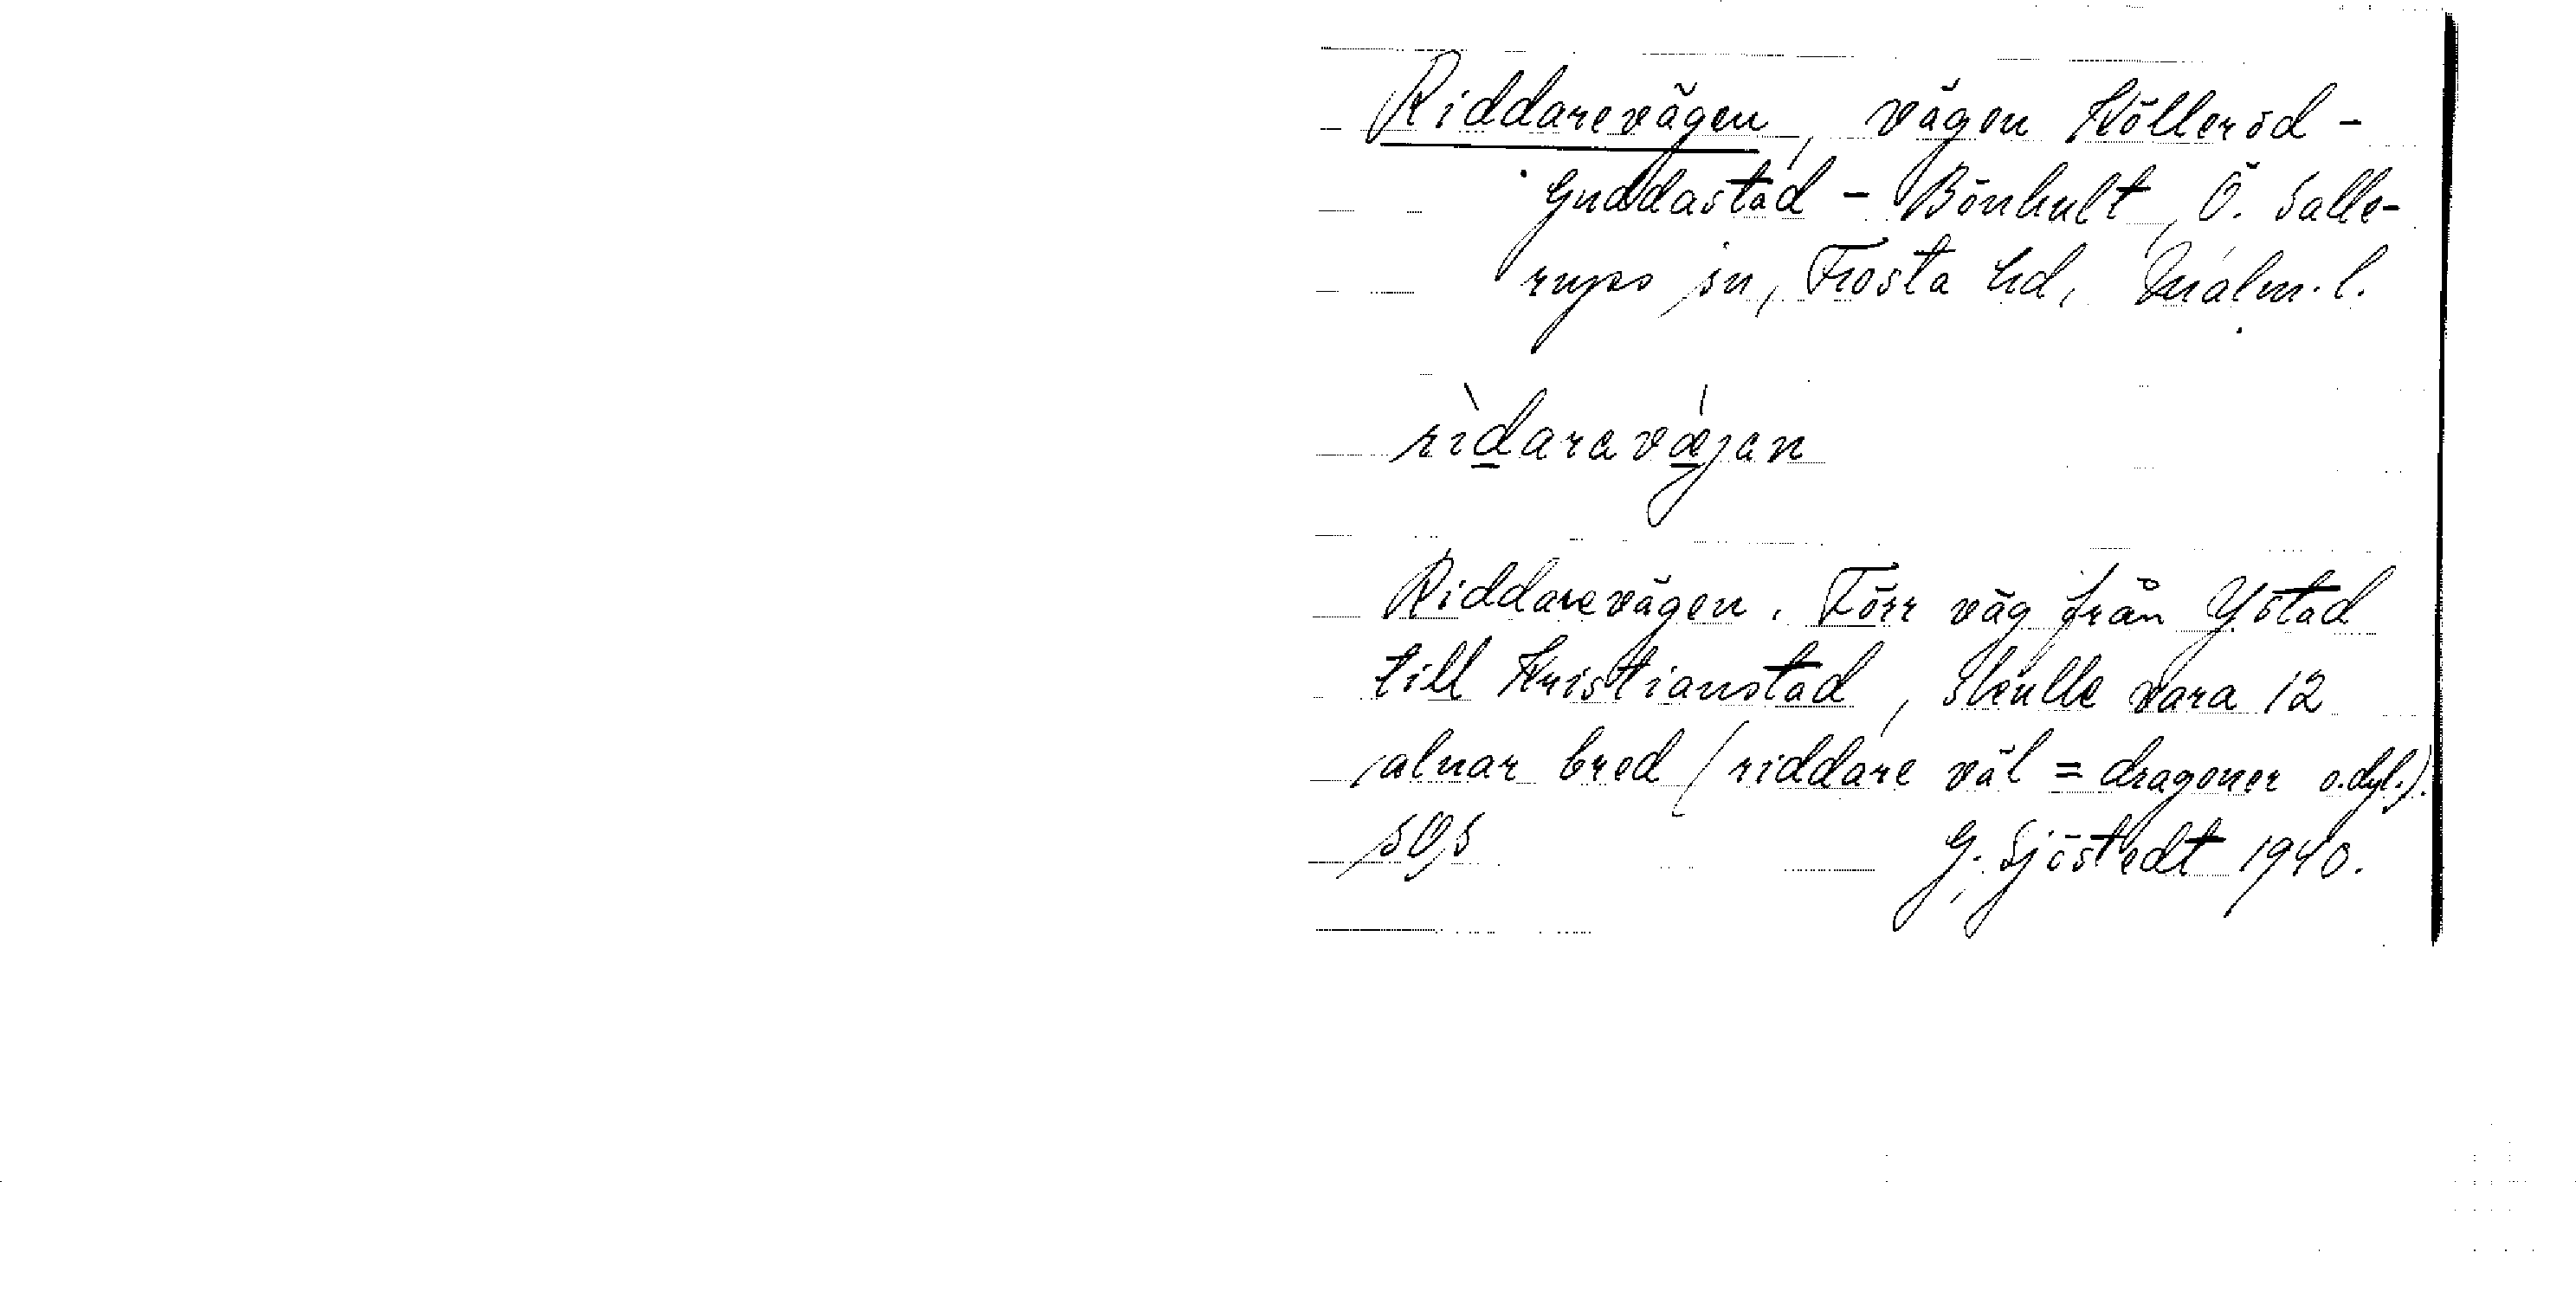 Riddarevägen, vägen Kölleröd -
Guddastad - Bönhult, Ö. Salle-
rups sn, Frosta hd, Malm. l.
rìdaravæ̀jan
Riddarevägen. Förr väg från Ystad
till Kristianstad, skulle vara 12
alnar bred (riddare väl = dragoner o.dyl.).
G. Sjöstedt 1940.